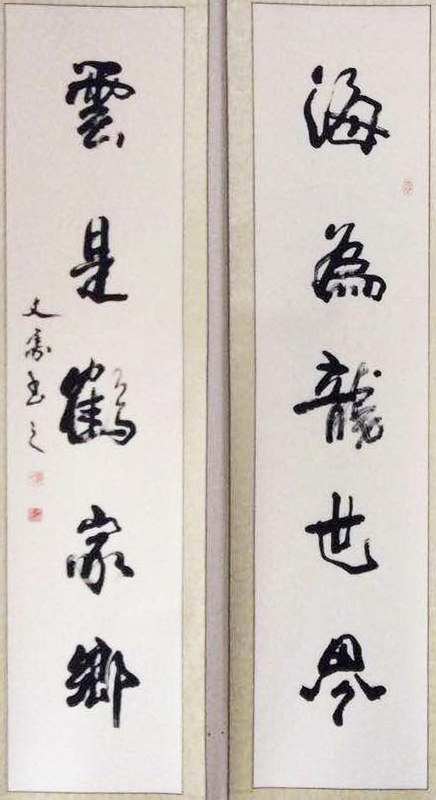 海為龍世界
雲是鶴家鄉
文書